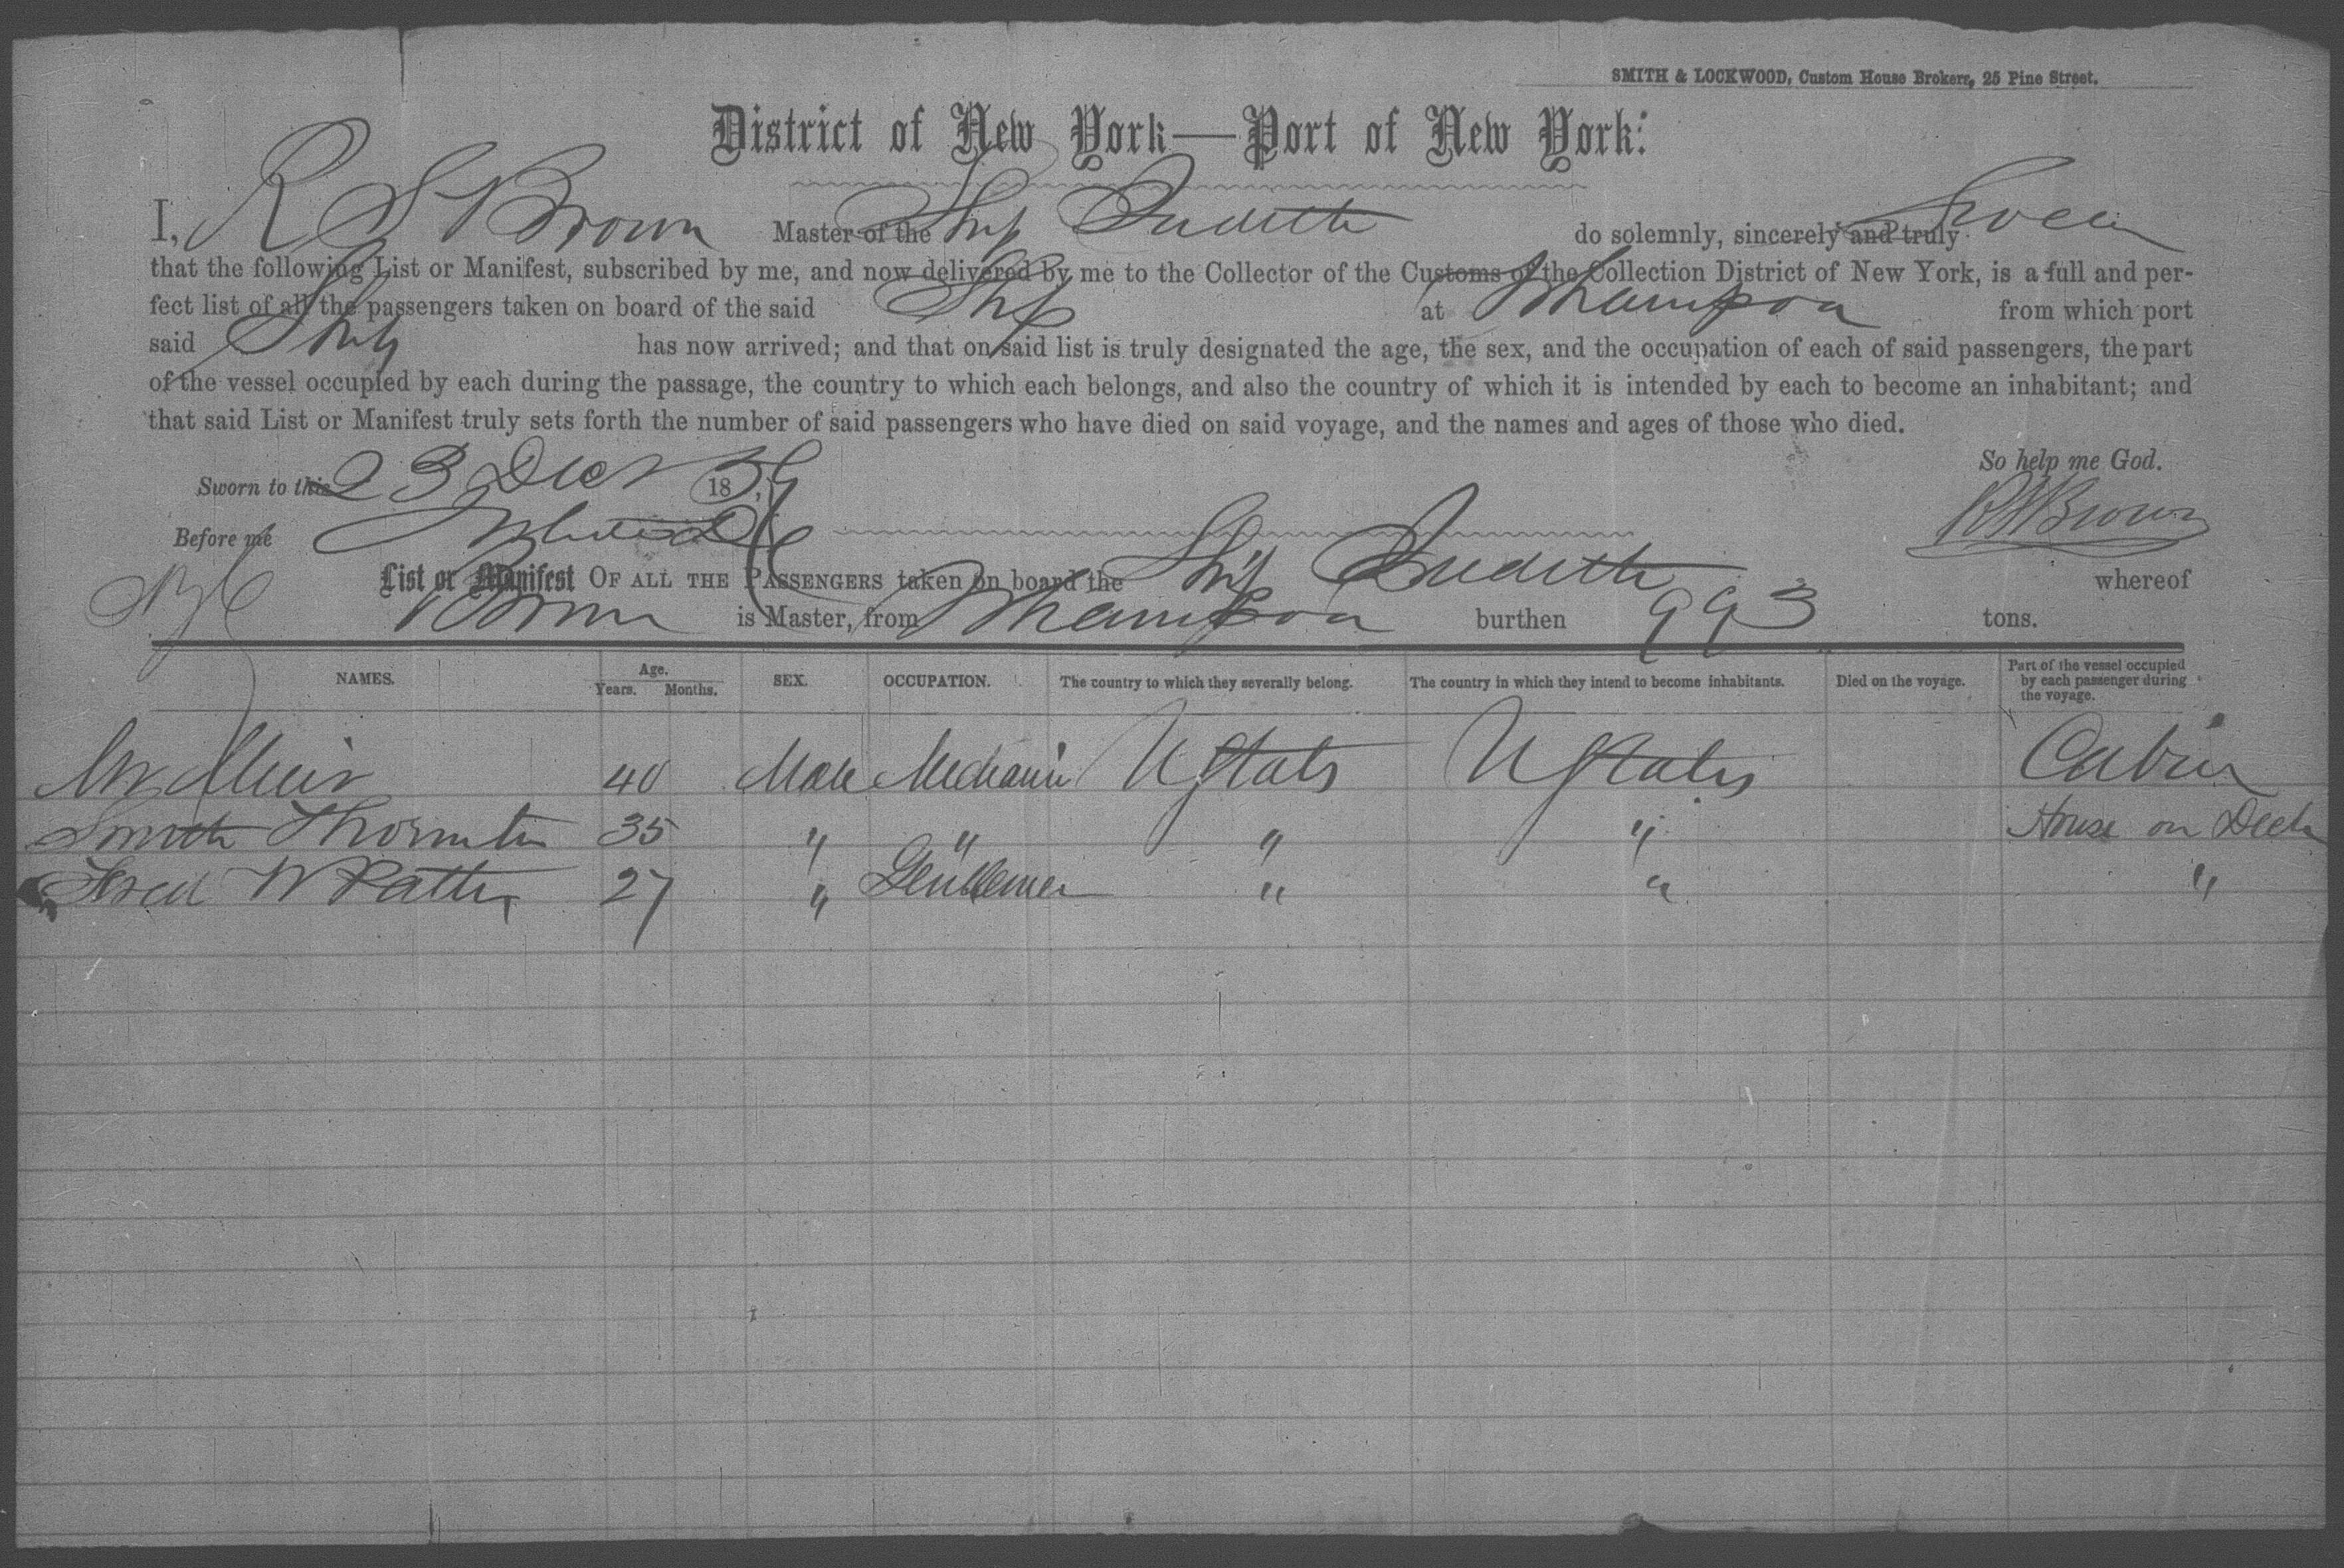 SMITH & LOCKWOOD, Custom House Brokers, 25 Pine Street.
District of New York—Port of New York:
I, R S Brown Master of the Ship Judith do solemnly, sincerely and truly Swear
that the following List or Manifest, subscribed by me, and now delivered by me to the Collector of the Customs of the Collection District of New York, is a full and per-
fect list of all the passengers taken on board of the said Ship at Whampoa from which port
said Ship has now arrived; and that on said list is truly designated the age, the sex, and the occupation of each of said passengers, the part
of the vessel occupied by each during the passage, the country to which each belongs, and also the country of which it is intended by each to become an inhabitant; and
that said List or Manifest truly sets forth the number of said passengers who have died on said voyage, and the names and ages of those who died.
So help me God.
Sworn to this 23 Decr 1859
Before me
R S Brown
List or Manifest OF ALL THE PASSENGERS taken on board the Ship Judith whereof
Brown is Master, from Whampoa burthen 993 tons.
NAMES. Age. Years. Months. SEX. OCCUPATION. The country to which they severally belong. The country in which they intend to become inhabitants. Died on the voyage. Part of the vessel occupied by each passenger during the voyage.
Mr Muir 40 Male Mechanic U States U States Cabin
Smith Thornton 35 " " " " House on Deck
Fred W 27 " Gentleman " " "